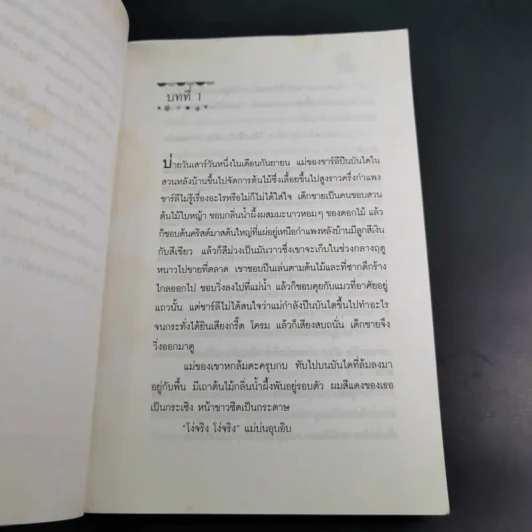 บทที่ 1
บ่ายวันเสาร์วันหนึ่งในเดือนกันยายน แม่ของชาร์ลีปีนบันไดใน
สวนหลังบ้านขึ้นไปจัดการต้นไม้ซึ่งเลื้อยขึ้นไปสูงราวครึ่งกำแพง
ชาร์ลีไม่รู้เรื่องอะไรหรือไม่ก็ไม่ได้ใส่ใจ เด็กชายเป็นคนชอบสวน
ต้นไม้ใบหญ้า ชอบกลิ่นน้ำผึ้งผสมมะนาวหอมๆ ของดอกไม้ แล้ว
ก็ชอบต้นคริสต์มาสต้นใหญ่ที่แผ่อยู่เหนือกำแพงหลังบ้านมีลูกสีเงิน
กับสีเขียว แล้วก็สีม่วงเป็นมันวาวซึ่งเขาจะเก็บในช่วงกลางฤดู
หนาวไปขายที่ตลาด เขาชอบปีนเล่นตามต้นไม้และที่ซากตึกร้าง
ไกลออกไป ชอบวิ่งลงไปที่แม่น้ำ แล้วก็ชอบคุยกับแมวที่อาศัยอยู่
แถวนั้น แต่ชาร์ลีไม่ได้สนใจว่าแม่กำลังปีนบันไดขึ้นไปทำอะไร
จนกระทั่งได้ยินเสียงกรี๊ด โครม แล้วก็เสียงสบถนั่น เด็กชายจึง
วิ่งออกมาดู
แม่ของเขาหกล้มตะครุบกบ ทับไปบนบันไดที่ล้มลงมา
อยู่กับพื้น มีเถาต้นไม้กลิ่นน้ำผึ้งพันอยู่รอบตัว ผมสีแดงของเธอ
เป็นกระเซิง หน้าขาวซีดเป็นกระดาษ
"โง่จริง โง่จริง" แม่บ่นอุบอิบ